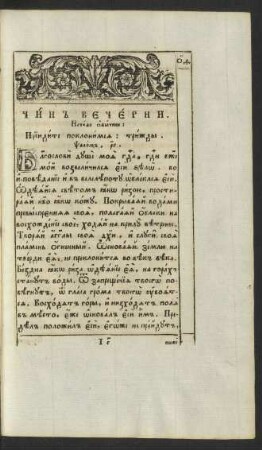 ЧИ́НЪ ВЕЧЕ́РНИ.
Прїиди́те поклони́мсѧ: три́жды.
Ѱало́мъ, рг҃.
Бл҃гословѝ дꙋшѐ моѧ̀ гдⷭ҇а, гдⷭ҇и бж҃е
мо́й возвели́чилсѧ є҆сѝ ѕѣлѡ̀. во
и҆сповѣ́данїе и҆ въ велелѣ́потꙋ ѡ҆блече́сѧ є҆сѝ.
Ѡ҆дѣѧ́йсѧ свѣ́томъ ꙗ҆́кѡ ри́зою, прости-
ра́ѧй нб҃о ꙗ҆́кѡ ко́жꙋ. Покрыва́ѧй вода́ми
превы́спреннѧѧ своѧ̀, полага́ѧй ѡ҆́блаки на
восхожде́нїе своѐ, ходѧ́й на крилꙋ̀ вѣ́трню.
Творѧ́й а҆́гг҃лы своѧ̀ дꙋ́хи, и҆ слꙋги̑ своѧ̀
пла́мень ѻ҆́гненный. Ѡ҆снова́ѧй зе́млю на
тве́рди є҆ѧ̀, не приклони́тсѧ во вѣ́къ вѣ́ка.
Бе́здна ꙗ҆́кѡ ри́за ѡ҆дѣѧ́нїе є҆ѧ̀, на гора́хъ
ста́нꙋтъ во́ды, Ѿ запреще́нїѧ твоегѡ̀ по-
бѣ́гнꙋтъ, ѿ гла́са гро́ма твоегѡ̀ ᲂу҆боѧ́т-
сѧ. Восхо́дѧтъ го́ры, и҆ низхо́дѧтъ полѧ̀
въ мѣ́сто, є҆́же ѡ҆снова́лъ є҆сѝ и҆̀мъ. Пре-
дѣ́лъ положи́лъ є҆сѝ, є҆гѡ́же не пре́йдꙋтъ,